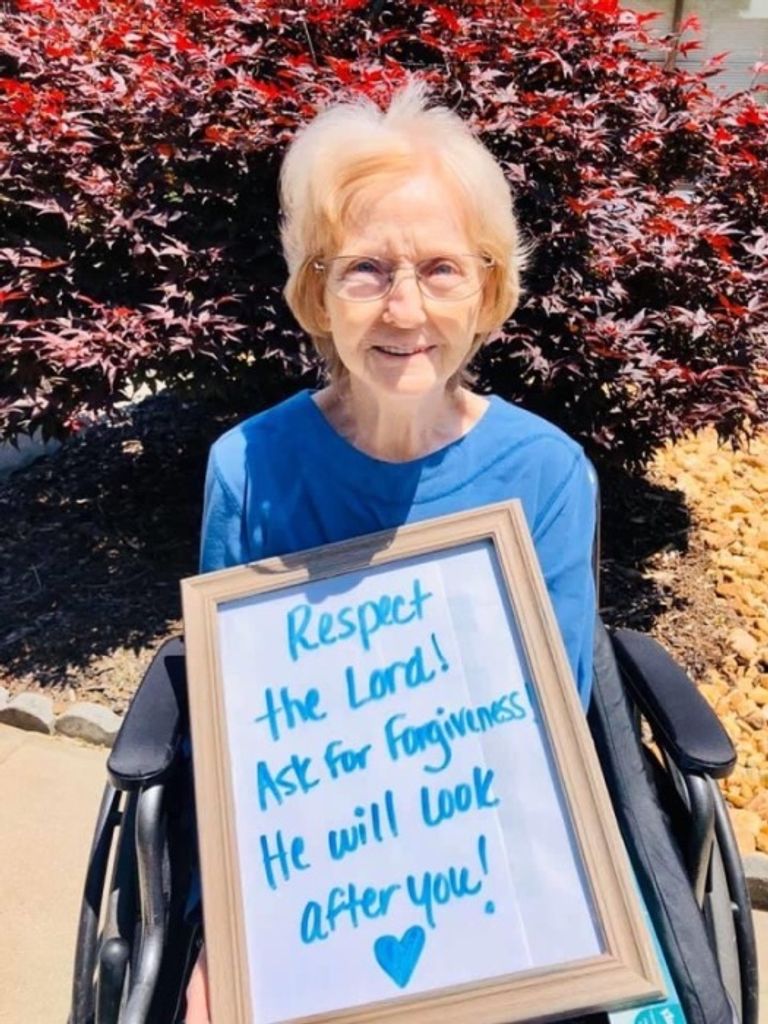 Respect
the Lord!
Ask for Forgiveness!
He will look
after you!